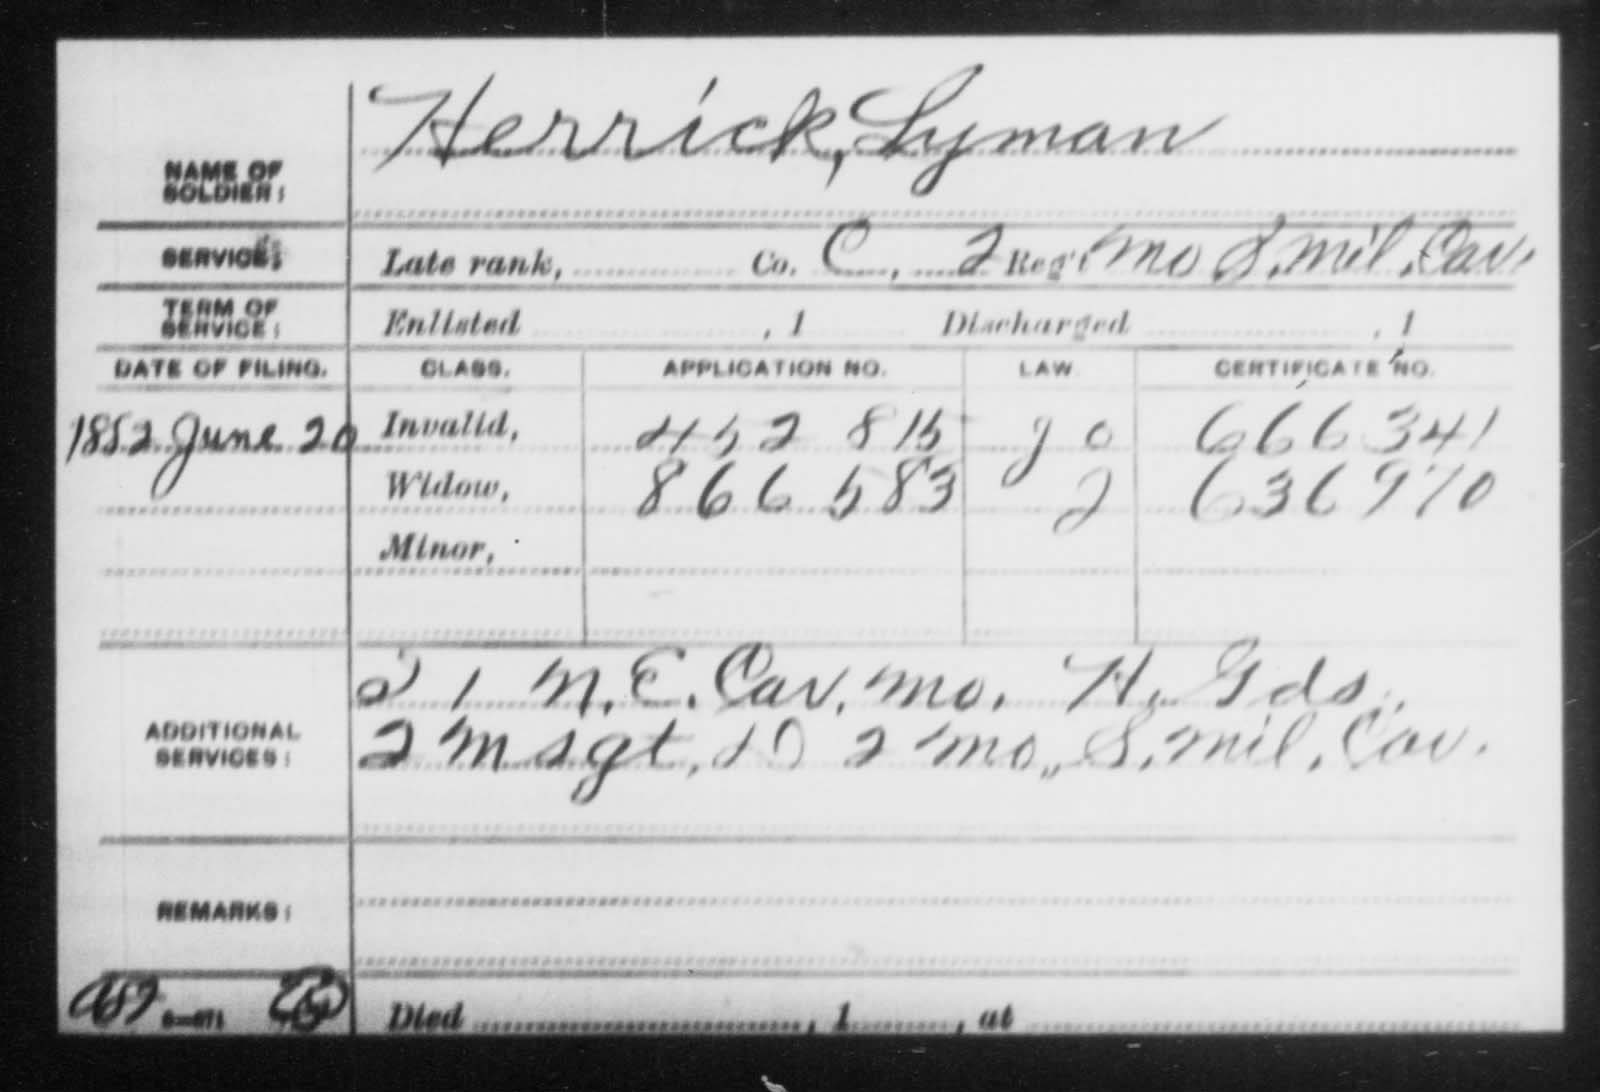 Herrick, Lyman
NAME OF
SOLDIER:
SERVICE: Late rank, Co. C, 2 Reg't Mo S. Mil. Cav.
TERM OF
SERVICE: Enlisted , 1 Discharged , 1
DATE OF FILING. CLASS. APPLICATION NO. LAW CERTIFICATE NO.
1882 June 20 Invalid, 452 815 666341
Widow, 866 583 636970
Minor,
1 N. E. Cav. Mo. H. Gds.
ADDITIONAL
SERVICES: 2 M Sgt, D 2 Mo. S. Mil. Cav.
REMARKS:
Died , 1 , at